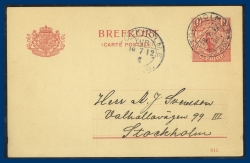 BREFKORT
(CARTE POSTALE)
Herr A. J. Svensson
Valhallavägen 99 III
Stockholm